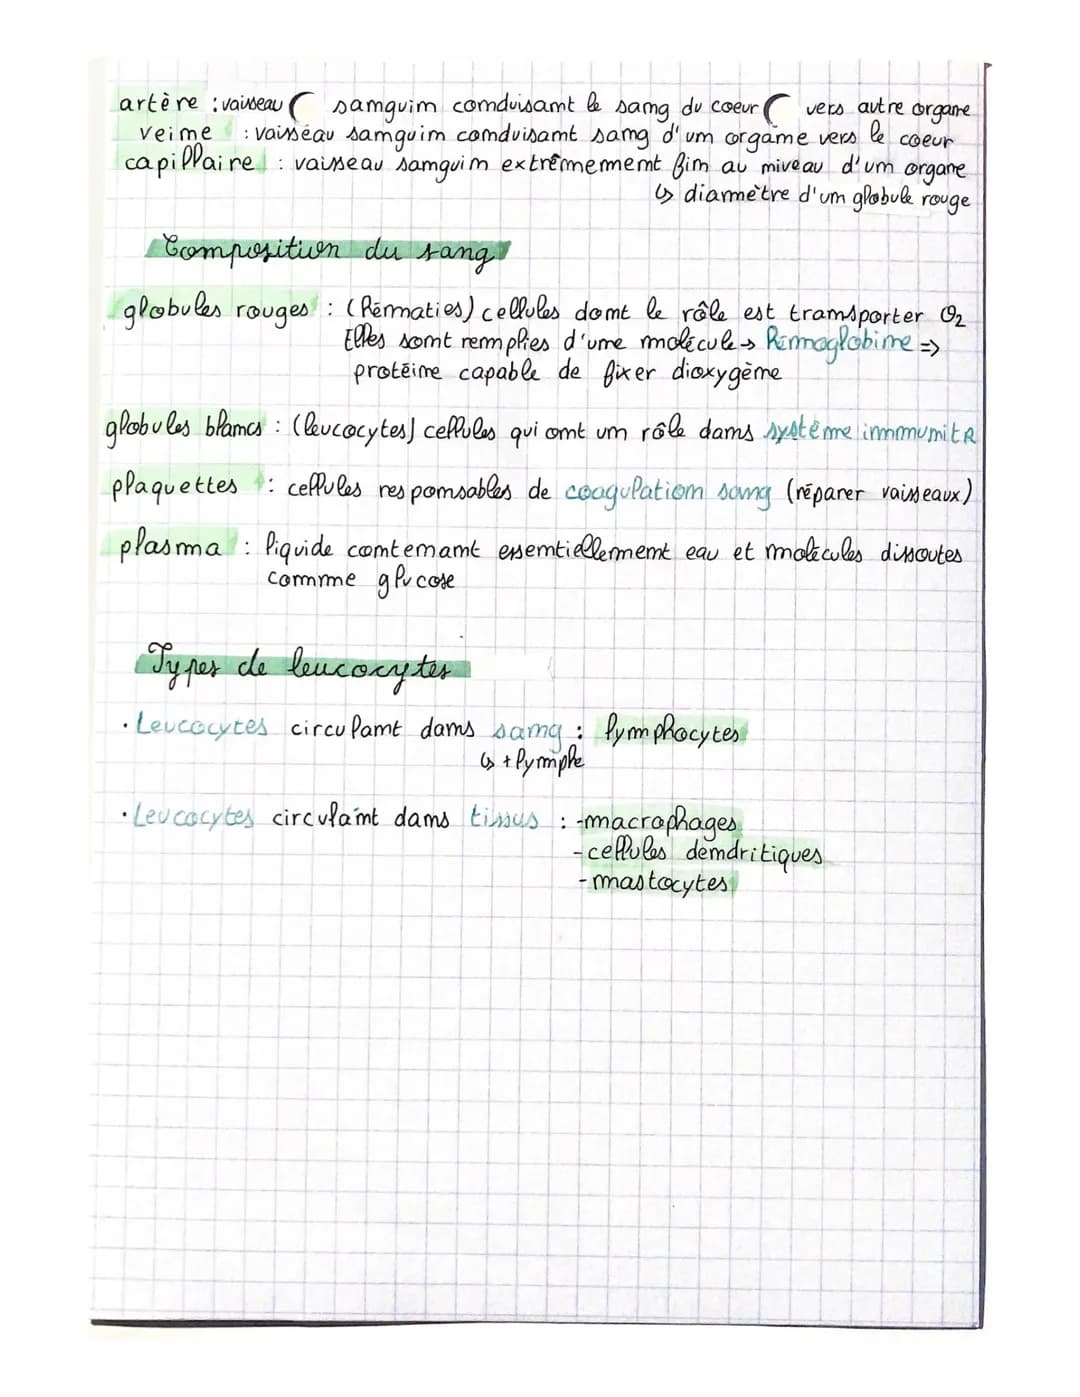 artère : vaisseau sanguin conduisant le sang du coeur vers autre organe
veine : vaisseau sanguin conduisant sang d'un organe vers le coeur
capillaire : vaisseau sanguin extrêmement fin au niveau d'un organe
↳ diamètre d'un globule rouge
Composition du sang
globules rouges : (hématies) cellules dont le rôle est transporter O2
Elles sont remplies d'une molécule → hémoglobine =>
protéine capable de fixer dioxygène
globules blancs : (leucocytes) cellules qui ont un rôle dans système immunitR
plaquettes : cellules responsables de coagulation sang (réparer vaisseaux)
plasma : liquide contenant essentiellement eau et molécules dissoutes
comme glucose
Types de leucocytes
• Leucocytes circulant dans sang : lymphocytes
↳ + lymphe
• Leucocytes circulant dans tissus : - macrophages
- cellules dendritiques
- mastocytes